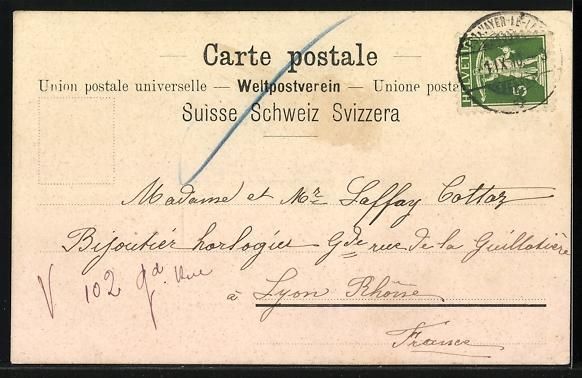 Carte postale
Union postale universelle — Weltpostverein — Unione posta
Suisse Schweiz Svizzera
HELVETIA
5
Madame et Mr Laffay Cottaz
Bijoutier horloger Gde rue de la Guillotière
102 gd rue
à Lyon Rhône
France